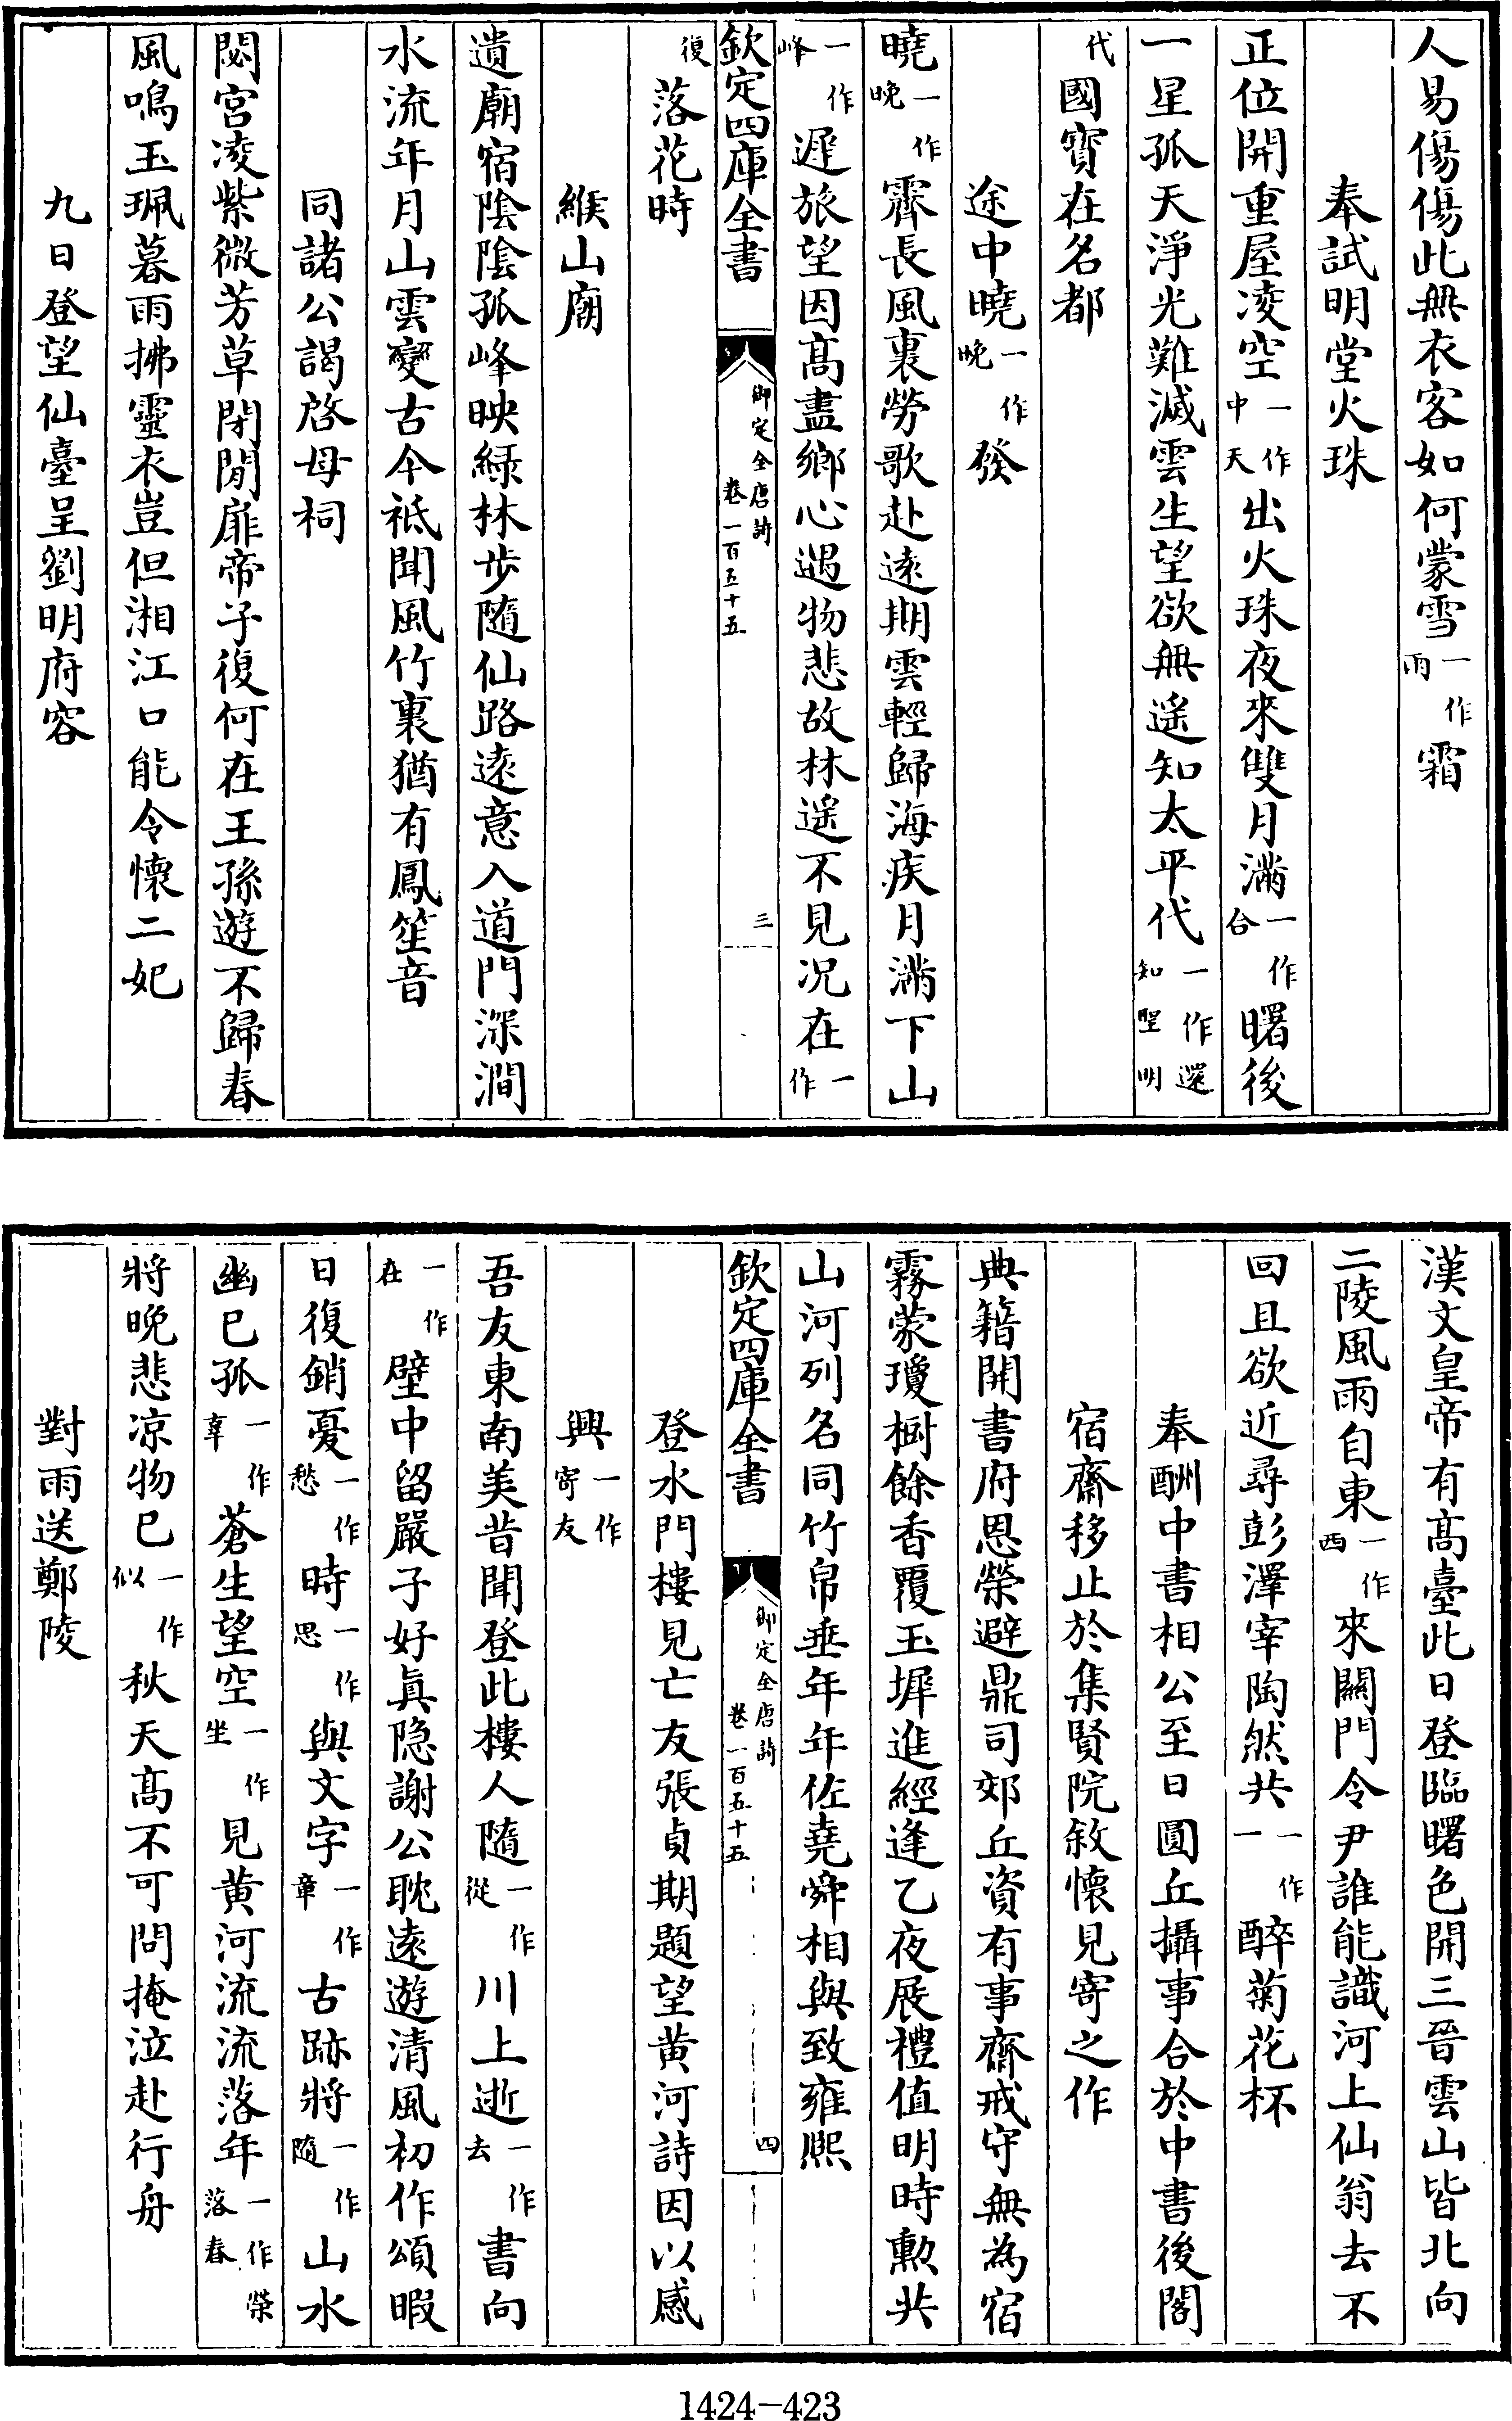 人易傷傷此無衣客如何蒙雪一作雨霜
奉試明堂火珠
正位開重屋凌空一作中天出火珠夜來雙月滿一作合曙後
一星孤天淨光難滅雲生望欲無遥知太平代一作還知聖明
代國寶在名都
途中曉一作晚發
曉一作晚霽長風裏勞歌赴遠期雲輕歸海疾月滿下山
一作峰遲旅望因髙盡鄉心遇物悲故林遥不見况在一作
欽定四庫全書
御定全唐詩
卷一百五十五
三
復落花時
緱山廟
遺廟宿陰陰孤峰映緑林步隨仙路遠意入道門深澗
水流年月山雲變古今祗聞風竹裏猶有鳳笙音
同諸公謁啓母祠
閟宫凌紫微芳草閉閒扉帝子復何在王孫遊不歸春
風鳴玉珮暮雨拂靈衣豈但湘江口能令懷二妃
九日登望仙臺呈劉明府容
漢文皇帝有髙臺此日登臨曙色開三晉雲山皆北向
二陵風雨自東一作西來關門令尹誰能識河上仙翁去不
回且欲近尋彭澤宰陶然共一作一醉菊花杯
奉酬中書相公至日圓丘攝事合於中書後閣
宿齋移止於集賢院敘懷見寄之作
典籍開書府恩榮避鼎司郊丘資有事齋戒守無為宿
霧蒙瓊樹餘香覆玉墀進經逢乙夜展禮值明時勲共
山河列名同竹帛垂年年佐堯舜相與致雍熙
欽定四庫全書
御定全唐詩
卷一百五十五
四
登水門樓見亡友張貞期題望黄河詩因以感
興一作寄友
吾友東南美昔聞登此樓人隨一作從川上逝一作去書向
一作在壁中留嚴子好真隐謝公耽遠遊清風初作頌暇
日復銷憂一作愁時一作思與文字一作章古跡將一作隨山水
幽已孤一作辜蒼生望空一作坐見黄河流流落年一作榮落春
將晚悲凉物已一作似秋天髙不可問掩泣赴行舟
對雨送鄭陵
1424-423